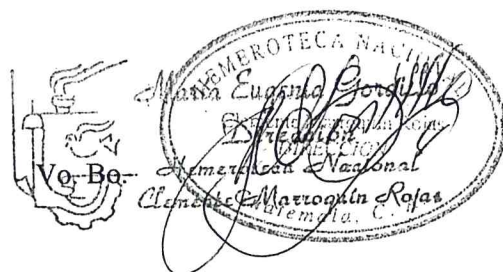 HEMEROTECA NACIONAL
María Eugenia Gordillo
Directora
DIRECCION
Vo. Bo.
Hemeroteca Nacional
Clemente Marroquín Rojas
Guatemala, C.